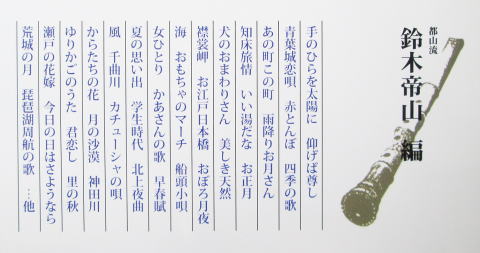 都山流
鈴木帝山 編
手のひらを太陽に 仰げば尊し
青葉城恋唄 赤とんぼ 四季の歌
あの町この町 雨降りお月さん
知床旅情 いい湯だな お正月
犬のおまわりさん 美しき天然
襟裳岬 お江戸日本橋 おぼろ月夜
海 おもちゃのマーチ 船頭小唄
女ひとり かあさんの歌 早春賦
夏の思い出 学生時代 北上夜曲
風 千曲川 カチューシャの唄
からたちの花 月の沙漠 神田川
ゆりかごのうた 君恋し 里の秋
瀬戸の花嫁 今日の日はさようなら
荒城の月 琵琶湖周航の歌 …他